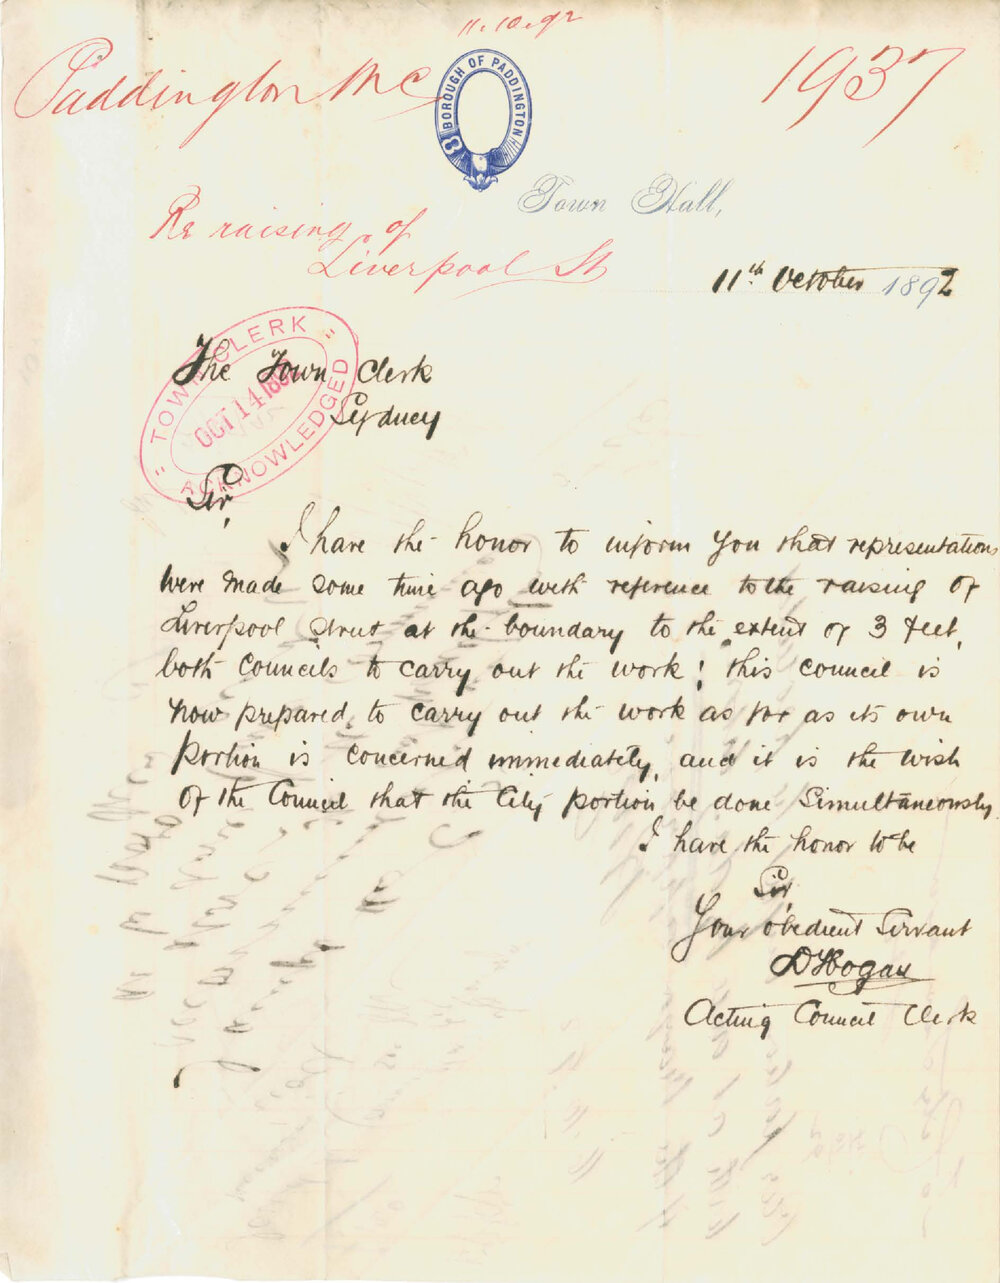 11.10.92
Paddington M C
1937
BOROUGH OF PADDINGTON
Town Hall,
Re raising of
Liverpool St
11th October 1892
TOWN CLERK
OCT 14 1892
ACKNOWLEDGED
The Town Clerk
Sydney
Sir,
I have the honor to inform you that representations
were made some time ago with reference to the raising of
Liverpool Street at the boundary to the extent of 3 feet,
both Councils to carry out the work; this council is
now prepared to carry out the work as far as its own
portion is concerned immediately, and it is the wish
of the Council that the City portion be done simultaneously.
I have the honor to be
Sir,
Your obedient Servant
D Hogan
Acting Council Clerk